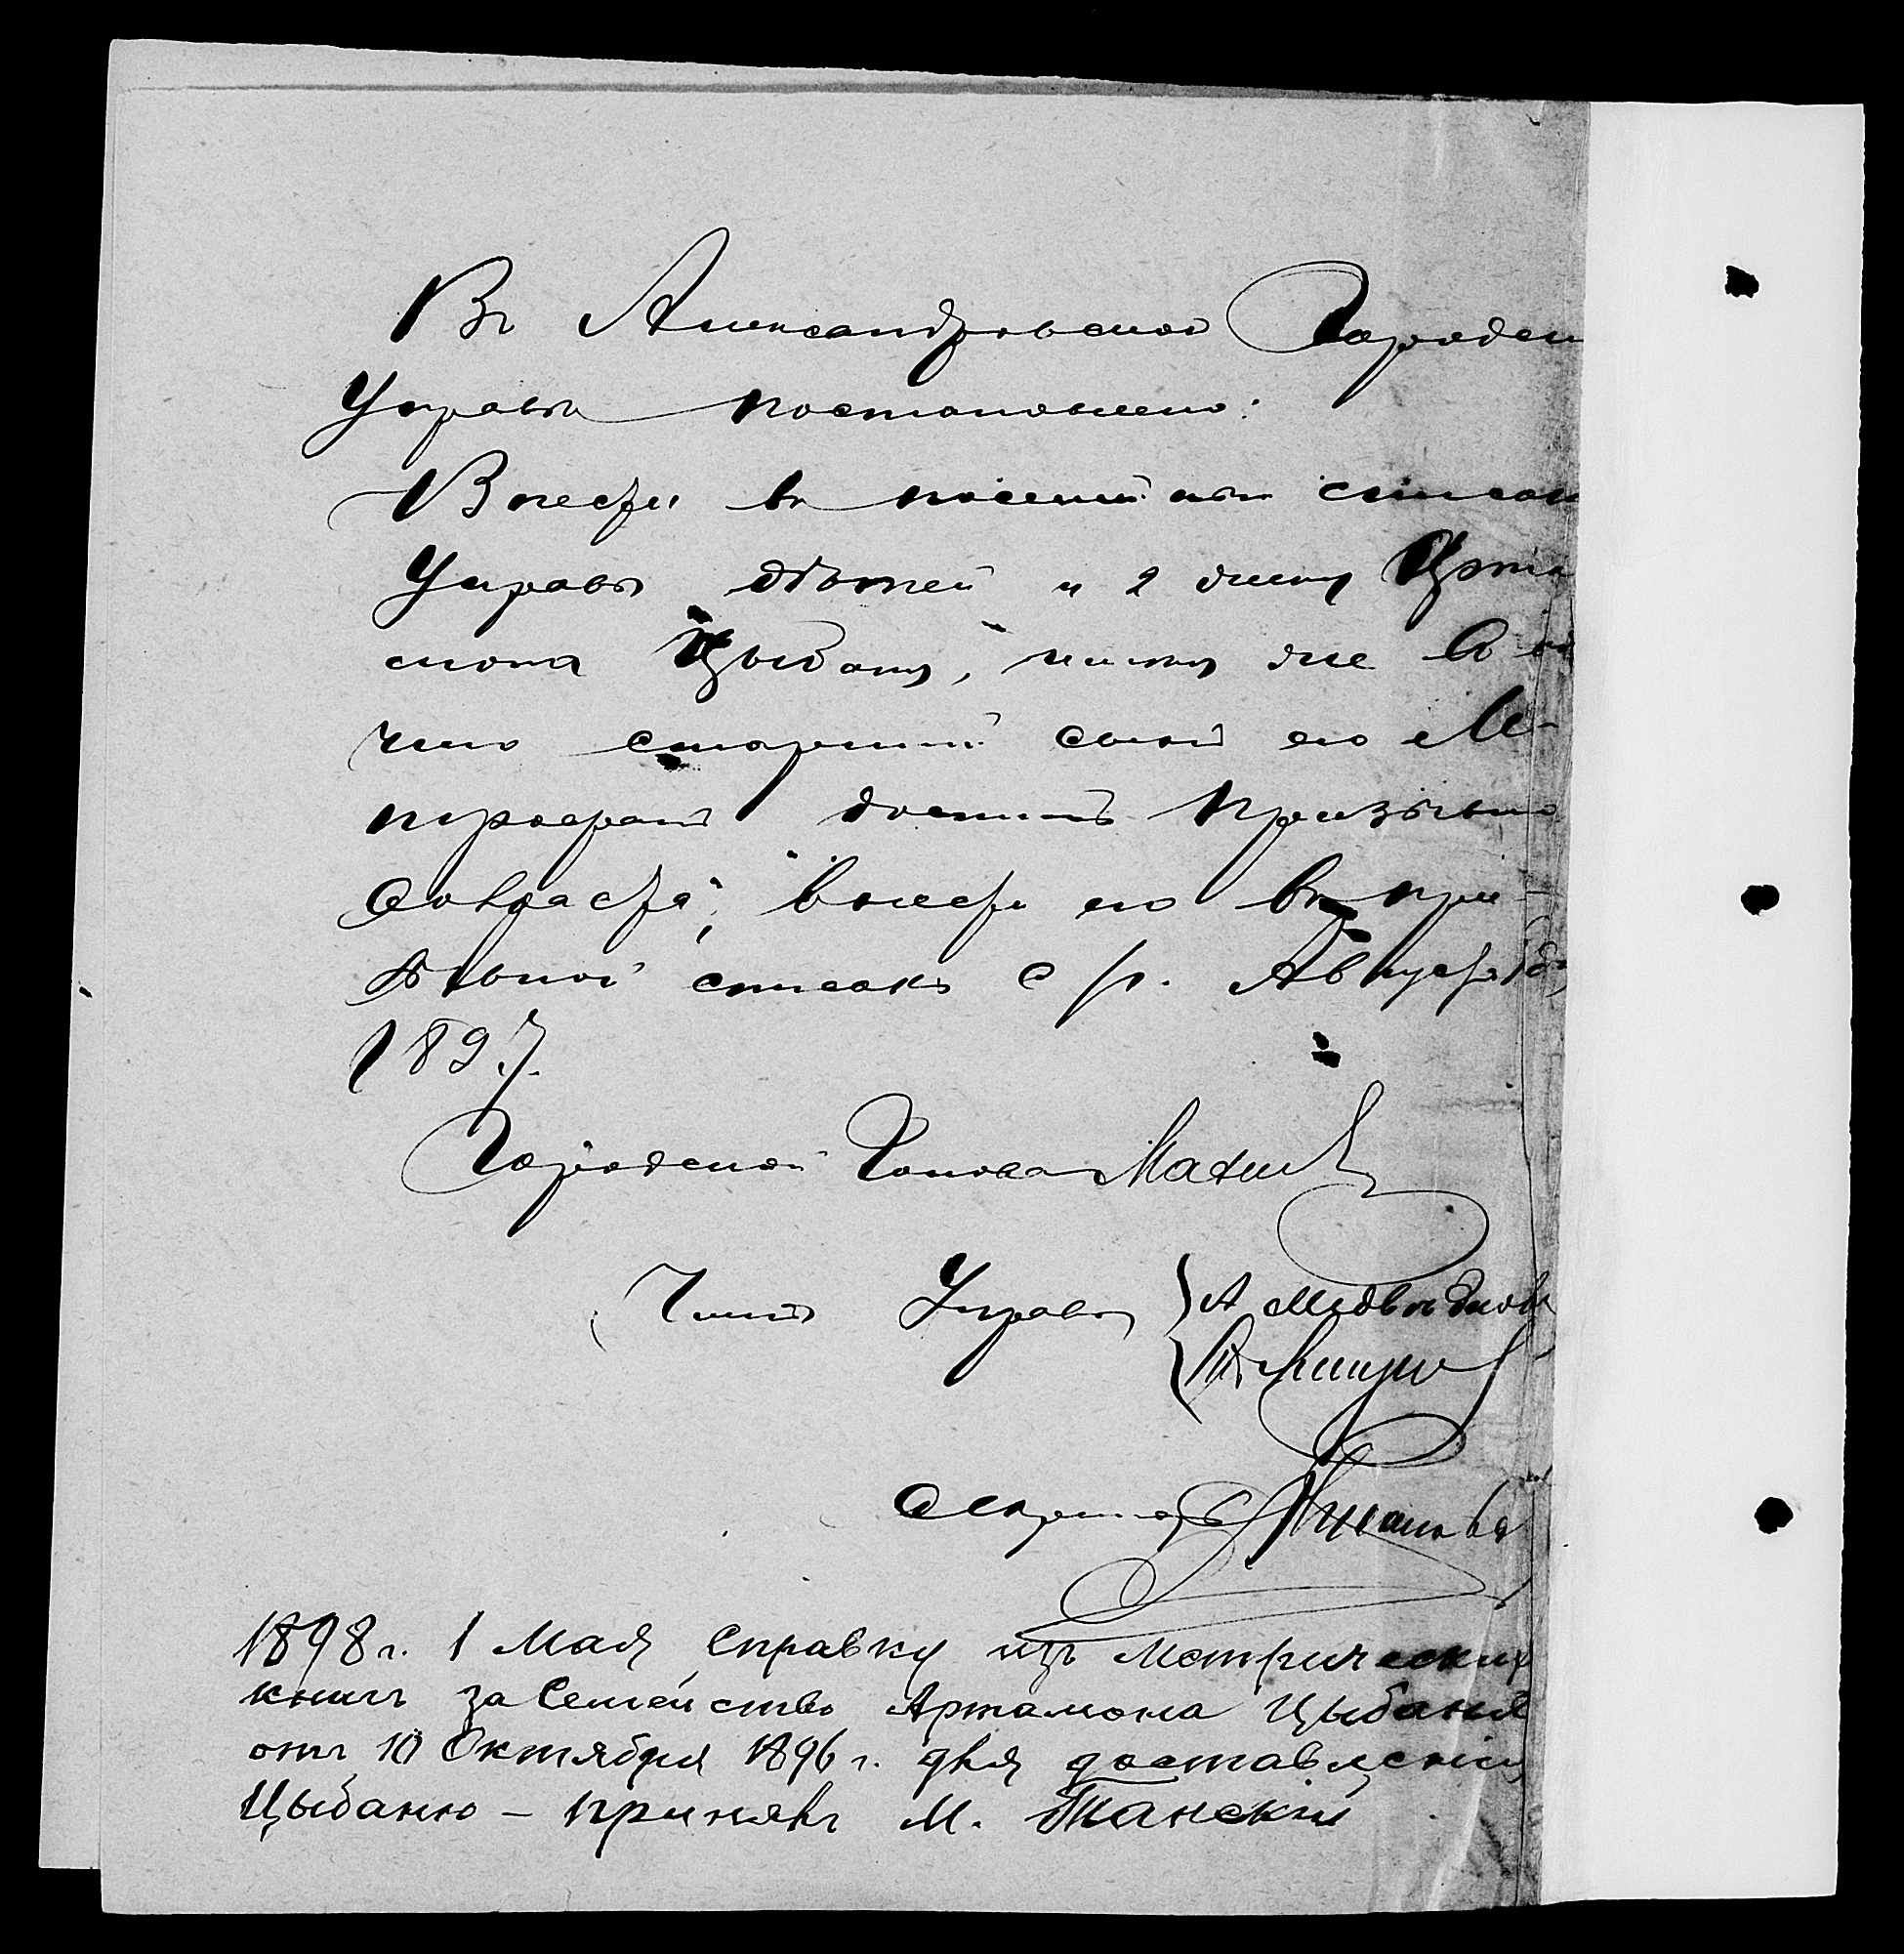 Въ Александровской Городск
Управѣ постановлено:
Внести въ посемейный списокъ
Управы дѣтей и 2 жену Арта
мона Цыбаня,
что старшій сынъ его Ми-
трофанъ достигъ призывно
возраста, внести его въ при-
зывной списокъ с/г. Августа
1897.
Городской Голова
Члены Управы { А Медвѣдковъ
Секретарь
1898 г. 1 Мая справку изъ Метрическихъ
книгъ за Семейство Артамона Цыбаня
отъ 10 Октября 1896 г. для доставленія
Цыбаню – принялъ М. Танскій